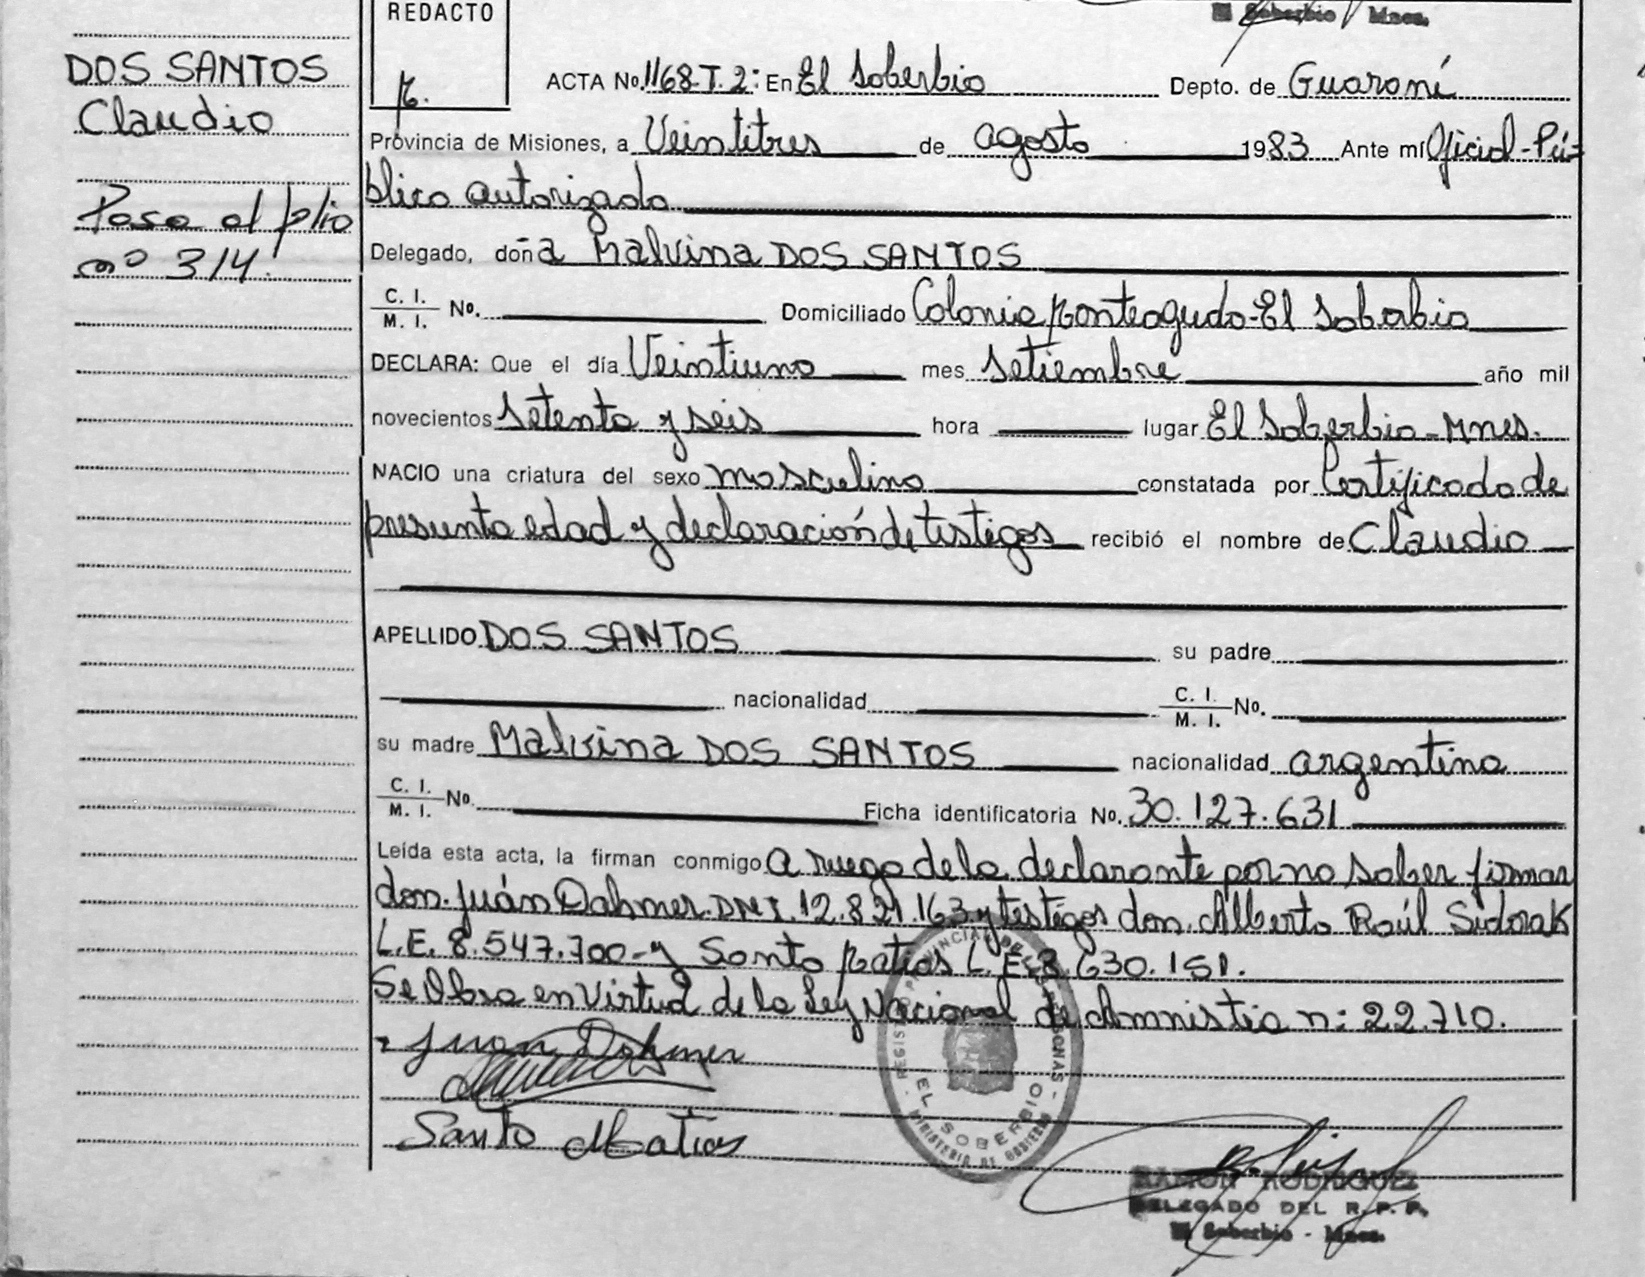 El Soberbio Mnes.
REDACTO
DOS SANTOS
Claudio
ACTA No. 1168-T.2: En El Soberbio Depto. de Guaraní
Provincia de Misiones, a Veintitres de agosto 1983 Ante mí Oficial-Pú=
blico autorizado
Paso al folio
nº 314.
Delegado, doña Malvina DOS SANTOS
C. I. M. I. No. Domiciliado Colonia Monteagudo-El Soberbio
DECLARA: Que el día Veintiuno mes Setiembre año mil
novecientos Setenta y seis hora lugar El Soberbio-Mnes.
NACIO una criatura del sexo masculino constatada por Certificado de
presunta edad y declaración de testigos recibió el nombre de Claudio
APELLIDO DOS SANTOS su padre
nacionalidad C. I. M. I. No.
su madre Malvina DOS SANTOS nacionalidad argentina
C. I. M. I. No. Ficha identificatoria No. 30.127.631
Leída esta acta, la firman conmigo a ruego de la declarante por no saber firmar
don Juán Dahmer DNI. 12.821.163 y testigos don Alberto Raúl Sidorak
L.E. 8.547.700-y Santo Matias L.E. 8.630.151.
Se Obra en Virtud de la Ley Nacional de Amnistia n: 22.710.
Juan Dahmer
Santo Matias
REGISTRO PROVINCIAL DE LAS PERSONAS
EL SOBERBIO
MINISTERIO DE GOBIERNO
RAMON RODRIGUEZ
DELEGADO DEL R. P. P.
El Soberbio - Mnes.